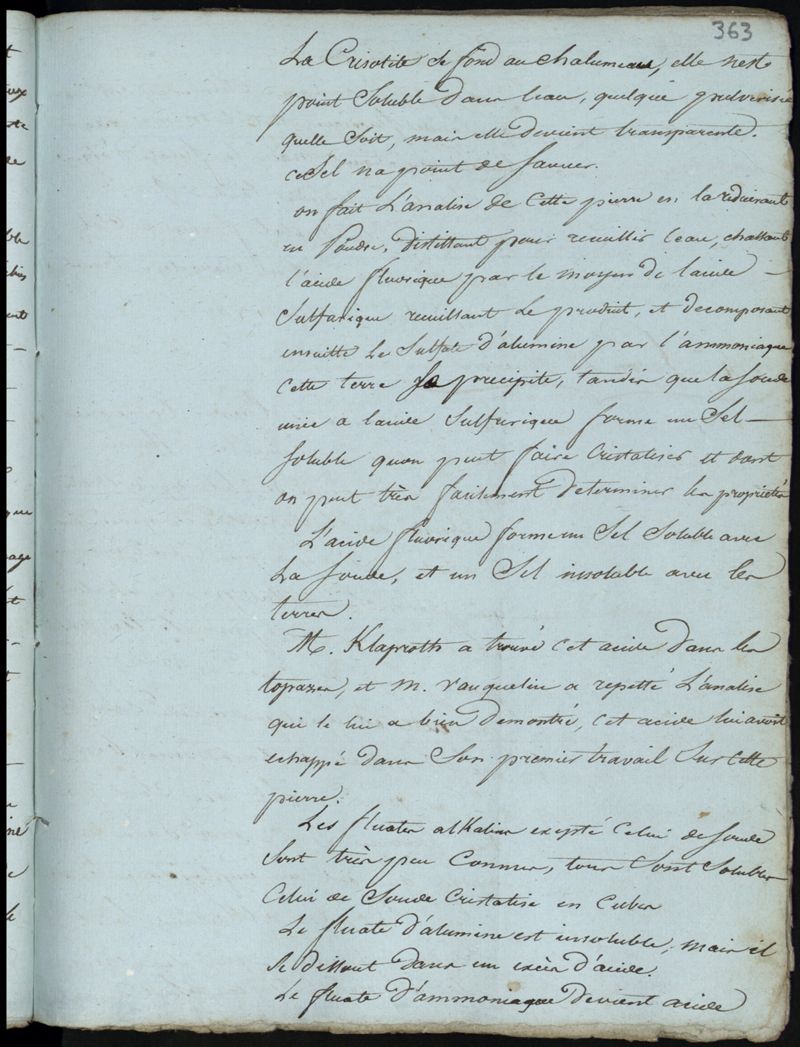 363
La Crisolite se fond au chalumeau, elle nest
point Soluble dans leau, quelque pulverisée
quelle soit, mais elle devient transparente.
ce Sel na point de saveur.
on fait L'analise de cette pierre en la reduisant
en Poudre, distillant pour recuillir leau, chassant
l'acide fluorique par le moyen de lacide
Sulfurique recuillant le produit, et decomposant
ensuitte Le Sulfate d'alumine par l'ammoniaque
cette terre se precipite, tandis que la soude
unie a lacide Sulfurique forme un Sel
soluble quon peut faire Cristaliser et dont
on peut très facilement determiner les proprietés
L'acide fluorique forme un Sel Soluble avec
La soude, et un Sel insoluble avec les
terres.
M. Klaproth a trouvé cet acide dans les
topazes, et M. vauquelin a repetté L'analise
qui le lui a bien demontré, cet acide lui avoit
echappé dans Son premier travail Sur Cette
pierre.
Les fluates alkalins exepté Celui de soude
Sont très peu Connus, tous Sont Solubles
Celui de Soude Cristalise en Cubes
Le fluate d'alumine est insoluble, mais il
se dissout dans un exès d'acide.
Le fluate d'ammoniaque devient acide